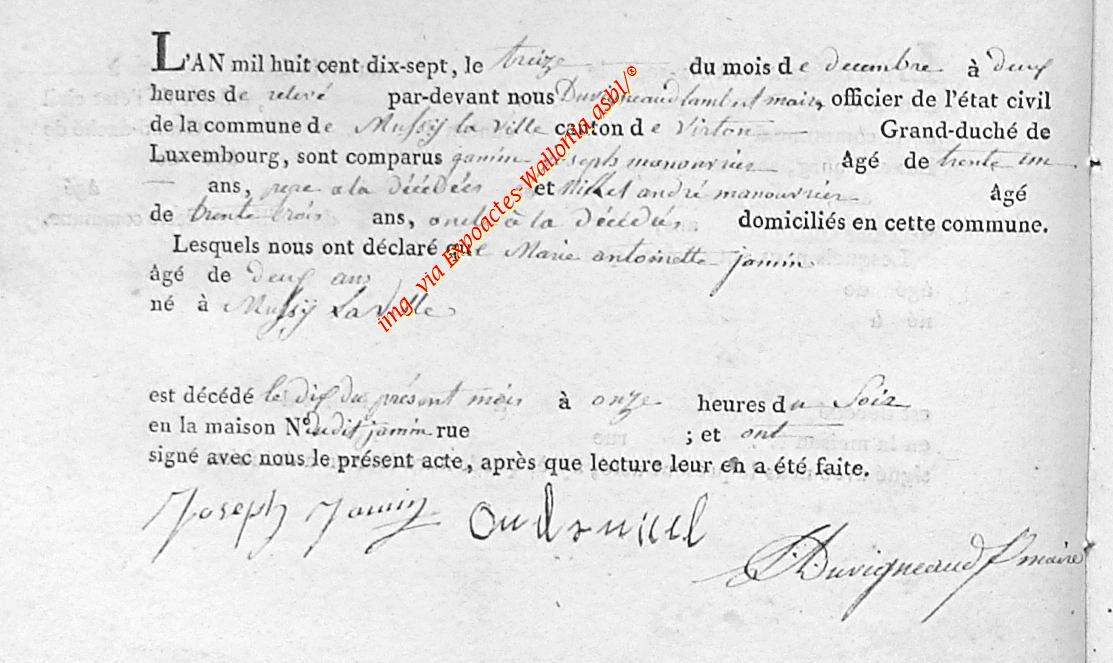 L'AN mil huit cent dix-sept, le treize du mois de decembre à deux
heures de relevé par-devant nous Duvigneaud lambert maire, officier de l'état civil
de la commune de Mussÿ la Ville canton de Virton Grand-duché de
Luxembourg, sont comparus jamin joseph manouvrier âgé de trente un
ans, pere a la décédée et Nickel andré manouvrier âgé
de trente trois ans, oncle à la décédée domiciliés en cette commune.
Lesquels nous ont déclaré que Marie antoinette jamin
âgé de deux ans
né à Mussÿ La Ville
est décédé le dix du présent mois à onze heures du Soir
en la maison N° dudit jamin rue ; et ont
signé avec nous le présent acte, après que lecture leur en a été faite.
Joseph Jamin
Duvigneaud maire
img via Expoactes Wallonia asbl/©